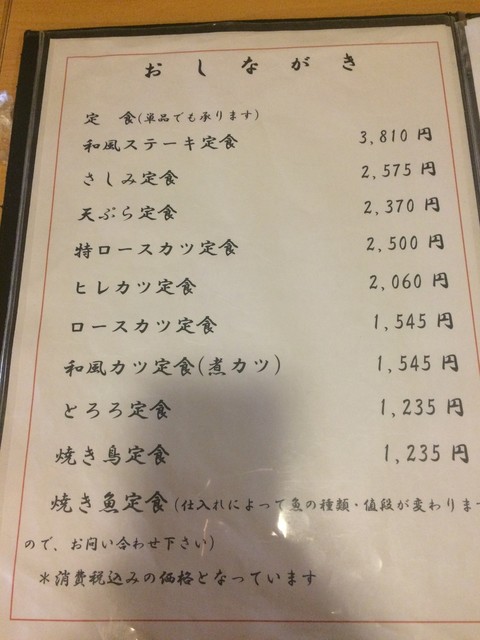 おしながき
定　食(単品でも承ります)
和風ステーキ定食 3,810 円
さしみ定食 2,575 円
天ぷら定食 2,370 円
特ロースカツ定食 2,500 円
ヒレカツ定食 2,060 円
ロースカツ定食 1,545 円
和風カツ定食(煮カツ) 1,545 円
とろろ定食 1,235 円
焼き鳥定食 1,235 円
焼き魚定食(仕入れによって魚の種類・値段が変わります
ので、お問い合わせ下さい)
＊消費税込みの価格となっています